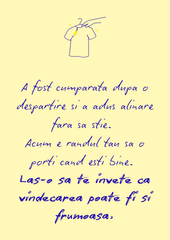 A fost cumparata dupa o
despartire si a adus alinare
fara sa stie.
Acum e randul tau sa o
porti cand esti bine.
Las-o sa te invete ca
vindecarea poate fi si
frumoasa.